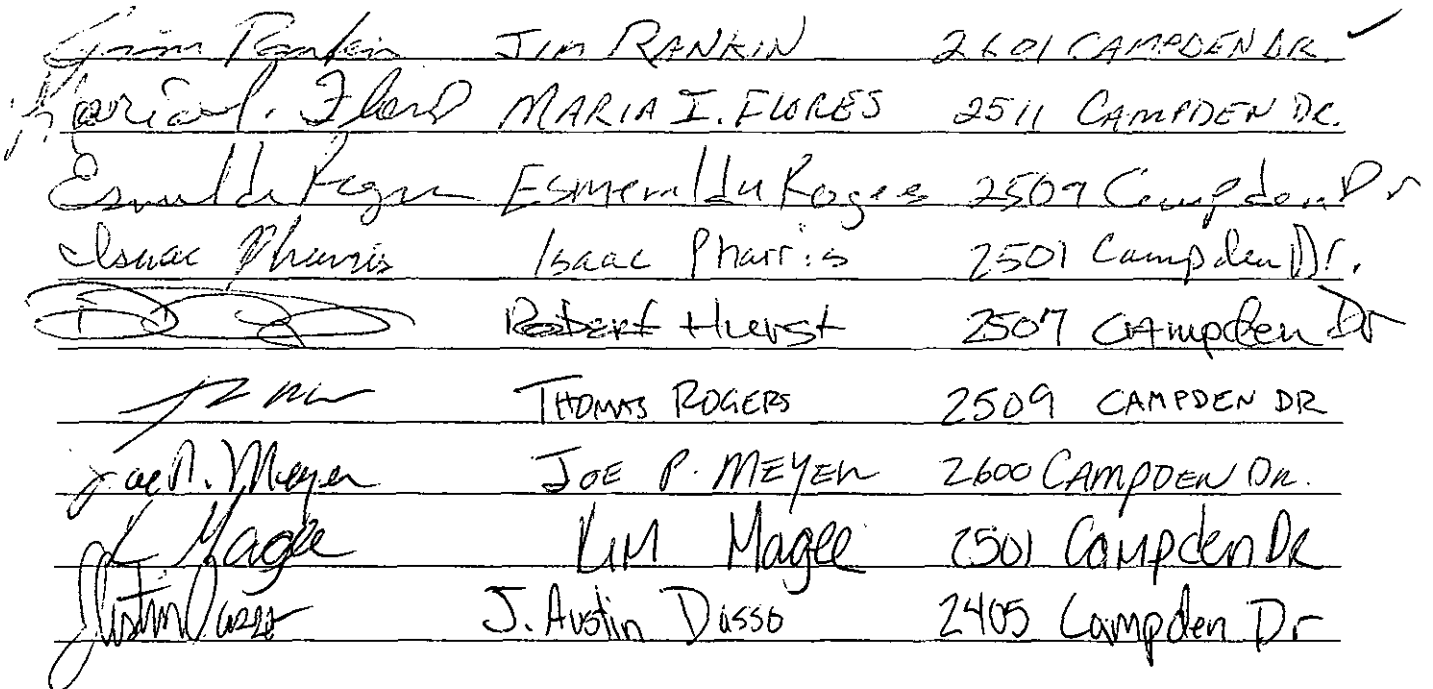 Jim Rankin JIM RANKIN 2601 CAMPDEN DR. ✓
Maria I. Flores MARIA I. FLORES 2511 CAMPDEN DR.
Esmeralda 2509 Campden Dr
Isaac Pharris Isaac Pharris 2501 Campden Dr.
Robert Huerst 2507 Campden Dr
THOMAS ROGERS 2509 CAMPDEN DR
Joe P. Meyer JOE P. MEYER 2600 CAMPDEN DR.
K Magee KIM Magee 2501 Campden DR
J. Austin Dasso 2405 Campden Dr